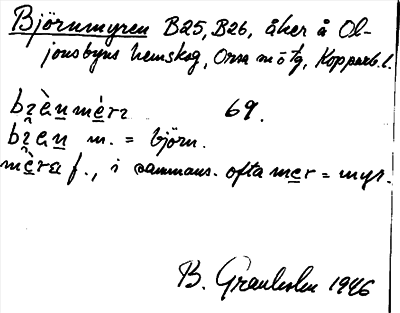 Björnmyren B25, B26, åker å Ol-
jonsbyns hemskog, Orsa sn o tg, Kopparb. l.
brènmèrɛ 69.
bren m. = björn.
mèra f., i sammans. ofta mer = myr.
B. Granholm 1946